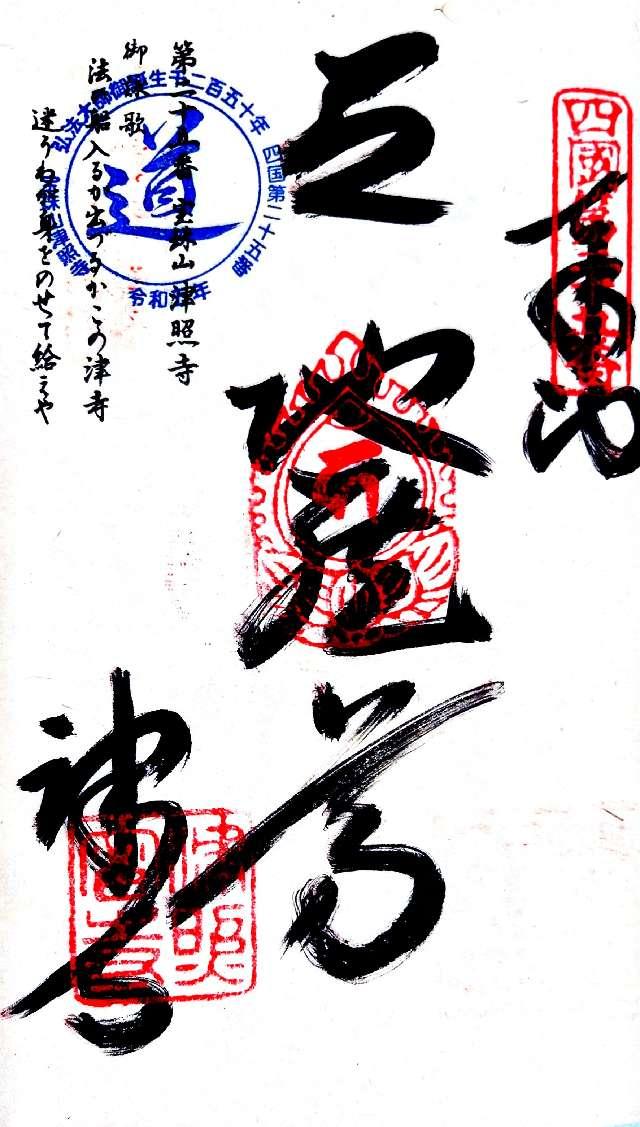 奉納
四國第二十五番
地蔵尊
津寺
第二十五番 宝珠山 津照寺
御詠歌
法の船入るか出づるかこの津寺
迷ふ我身をのせて給へや
弘法大師御誕生千二百五十年
四国第二十五番
宝珠山津照寺
道